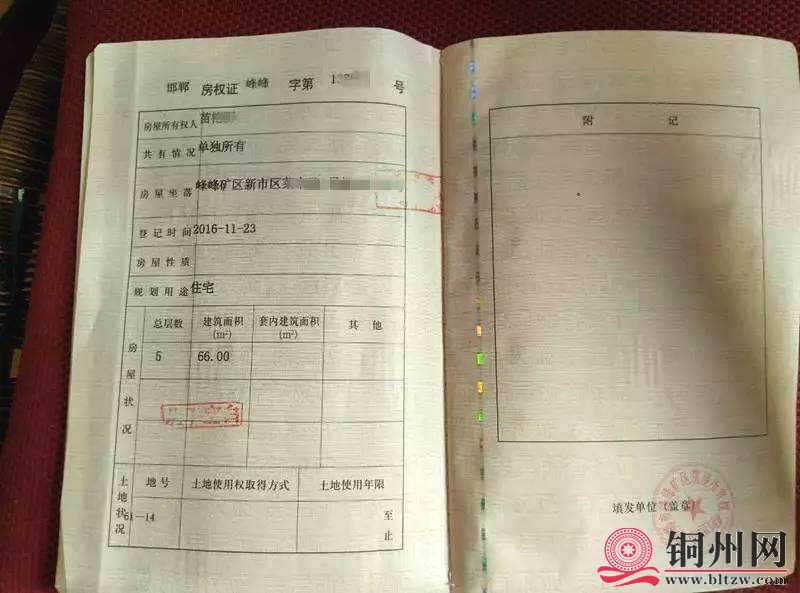 邯郸 房权证 峰峰 字第 1 号
房屋所有权人 苗
共有情况 单独所有
房屋坐落 峰峰矿区新市区
登记时间 2016-11-23
房屋性质
规划用途 住宅
房屋状况
总层数 建筑面积(m²) 套内建筑面积(m²) 其他
5 66.00
土地状况
地号 土地使用权取得方式 土地使用年限
61—14 至
止
附记
填发单位(盖章)
铜州网
www.bltzw.com